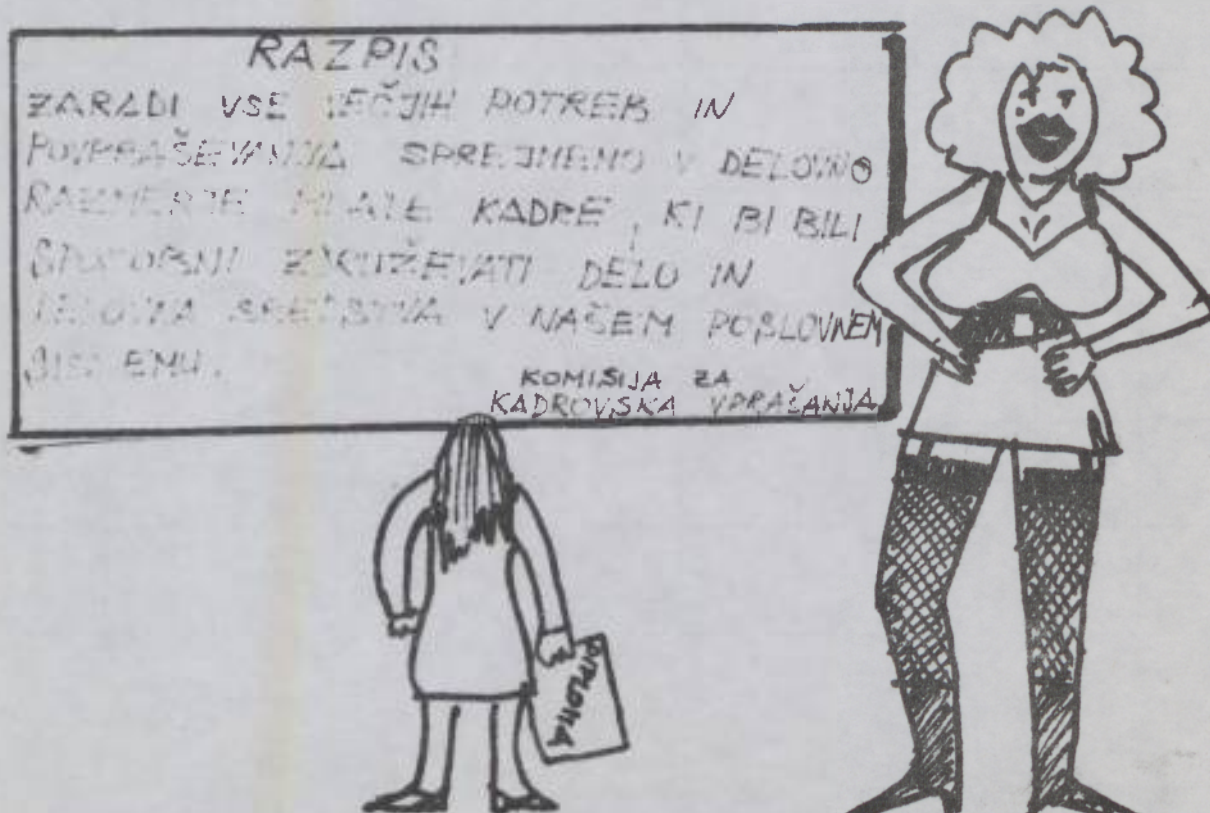 RAZPIS
ZARADI VSE VEČJIH POTREB IN
POVPRAŠEVANJA SPREJMEMO V DELOVNO
RAZMERJE MLADE KADRE, KI BI BILI
SPOSOBNI ZDRUŽEVATI DELO IN
DELOVNA SREDSTVA V NAŠEM POSLOVNEM
SISTEMU.
KOMISIJA ZA
KADROVSKA VPRAŠANJA
DIPLOMA